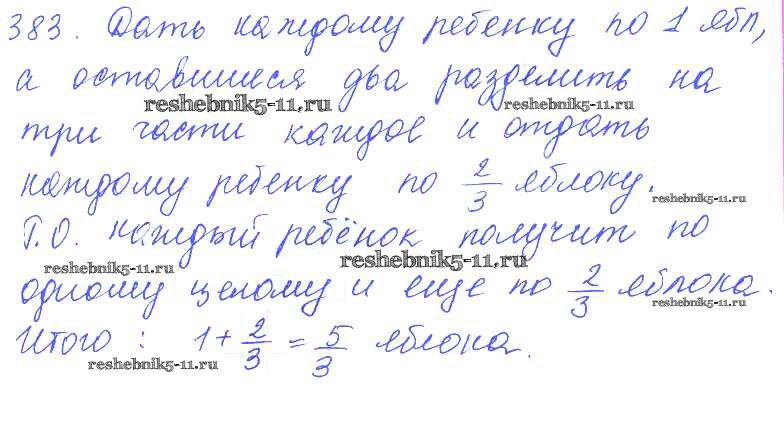 383. Дать каждому ребенку по 1 ябл,
а оставшиеся два разделить на
reshebnik5-11.ru reshebnik5-11.ru
три части каждое и отдать
каждому ребенку по 2/3 яблоку.
reshebnik5-11.ru
Т.О. каждый ребёнок получит по
reshebnik5-11.ru reshebnik5-11.ru
одному целому и еще по 2/3 яблока.
reshebnik5-11.ru
Итого: 1 + 2/3 = 5/3 яблока.
reshebnik5-11.ru